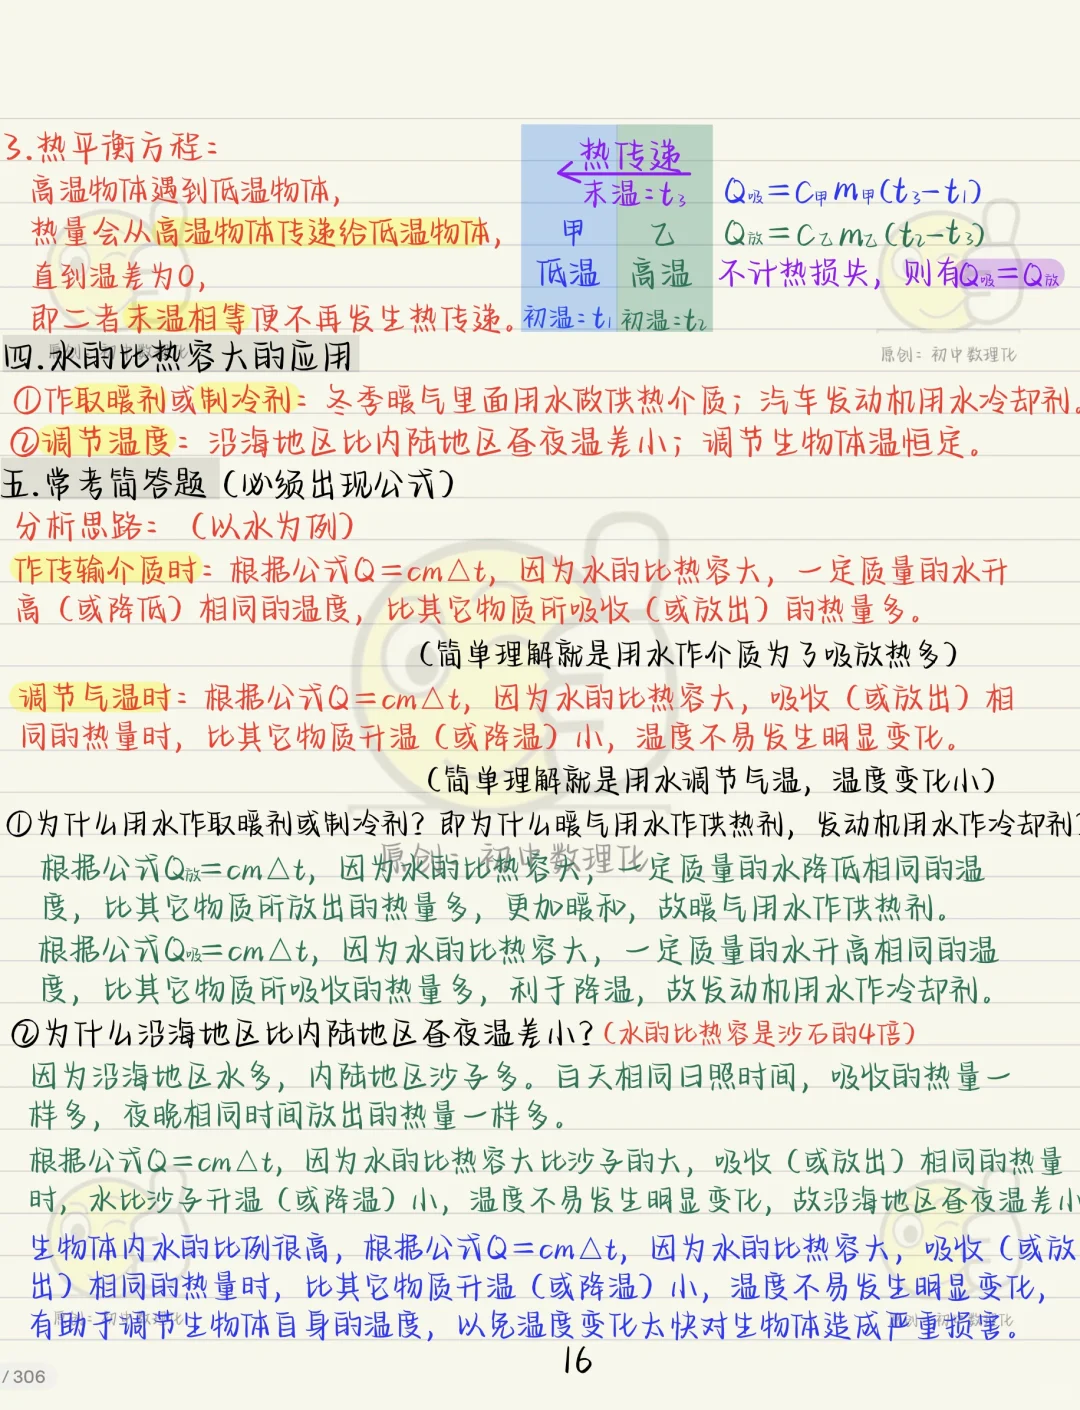 3.热平衡方程：
高温物体遇到低温物体，
热量会从高温物体传递给低温物体，
直到温差为0，
即二者末温相等便不再发生热传递。
热传递
末温=t₃
甲 乙
低温 高温
初温=t₁ 初温=t₂
Q吸=C甲m甲(t₃-t₁)
Q放=C乙m乙(t₂-t₃)
不计热损失，则有Q吸=Q放
原创：初中数理化
四.水的比热容大的应用
原创：初中数理化
①作取暖剂或制冷剂：冬季暖气里面用水做供热介质；汽车发动机用水冷却剂。
②调节温度：沿海地区比内陆地区昼夜温差小；调节生物体温恒定。
五.常考简答题（必须出现公式）
分析思路：（以水为例）
作传输介质时：根据公式Q=cm△t，因为水的比热容大，一定质量的水升
高（或降低）相同的温度，比其它物质所吸收（或放出）的热量多。
（简单理解就是用水作介质为了吸放热多）
调节气温时：根据公式Q=cm△t，因为水的比热容大，吸收（或放出）相
同的热量时，比其它物质升温（或降温）小，温度不易发生明显变化。
（简单理解就是用水调节气温，温度变化小）
①为什么用水作取暖剂或制冷剂？即为什么暖气用水作供热剂，发动机用水作冷却剂？
原创：初中数理化
根据公式Q放=cm△t，因为水的比热容大，一定质量的水降低相同的温
度，比其它物质所放出的热量多，更加暖和，故暖气用水作供热剂。
根据公式Q吸=cm△t，因为水的比热容大，一定质量的水升高相同的温
度，比其它物质所吸收的热量多，利于降温，故发动机用水作冷却剂。
②为什么沿海地区比内陆地区昼夜温差小？（水的比热容是沙石的4倍）
因为沿海地区水多，内陆地区沙子多。白天相同日照时间，吸收的热量一
样多，夜晚相同时间放出的热量一样多。
根据公式Q=cm△t，因为水的比热容大比沙子的大，吸收（或放出）相同的热量
时，水比沙子升温（或降温）小，温度不易发生明显变化，故沿海地区昼夜温差小
生物体内水的比例很高，根据公式Q=cm△t，因为水的比热容大，吸收（或放
出）相同的热量时，比其它物质升温（或降温）小，温度不易发生明显变化，
原创：初中数理化
原创：初中数理化
有助于调节生物体自身的温度，以免温度变化太快对生物体造成严重损害。
16
/ 306